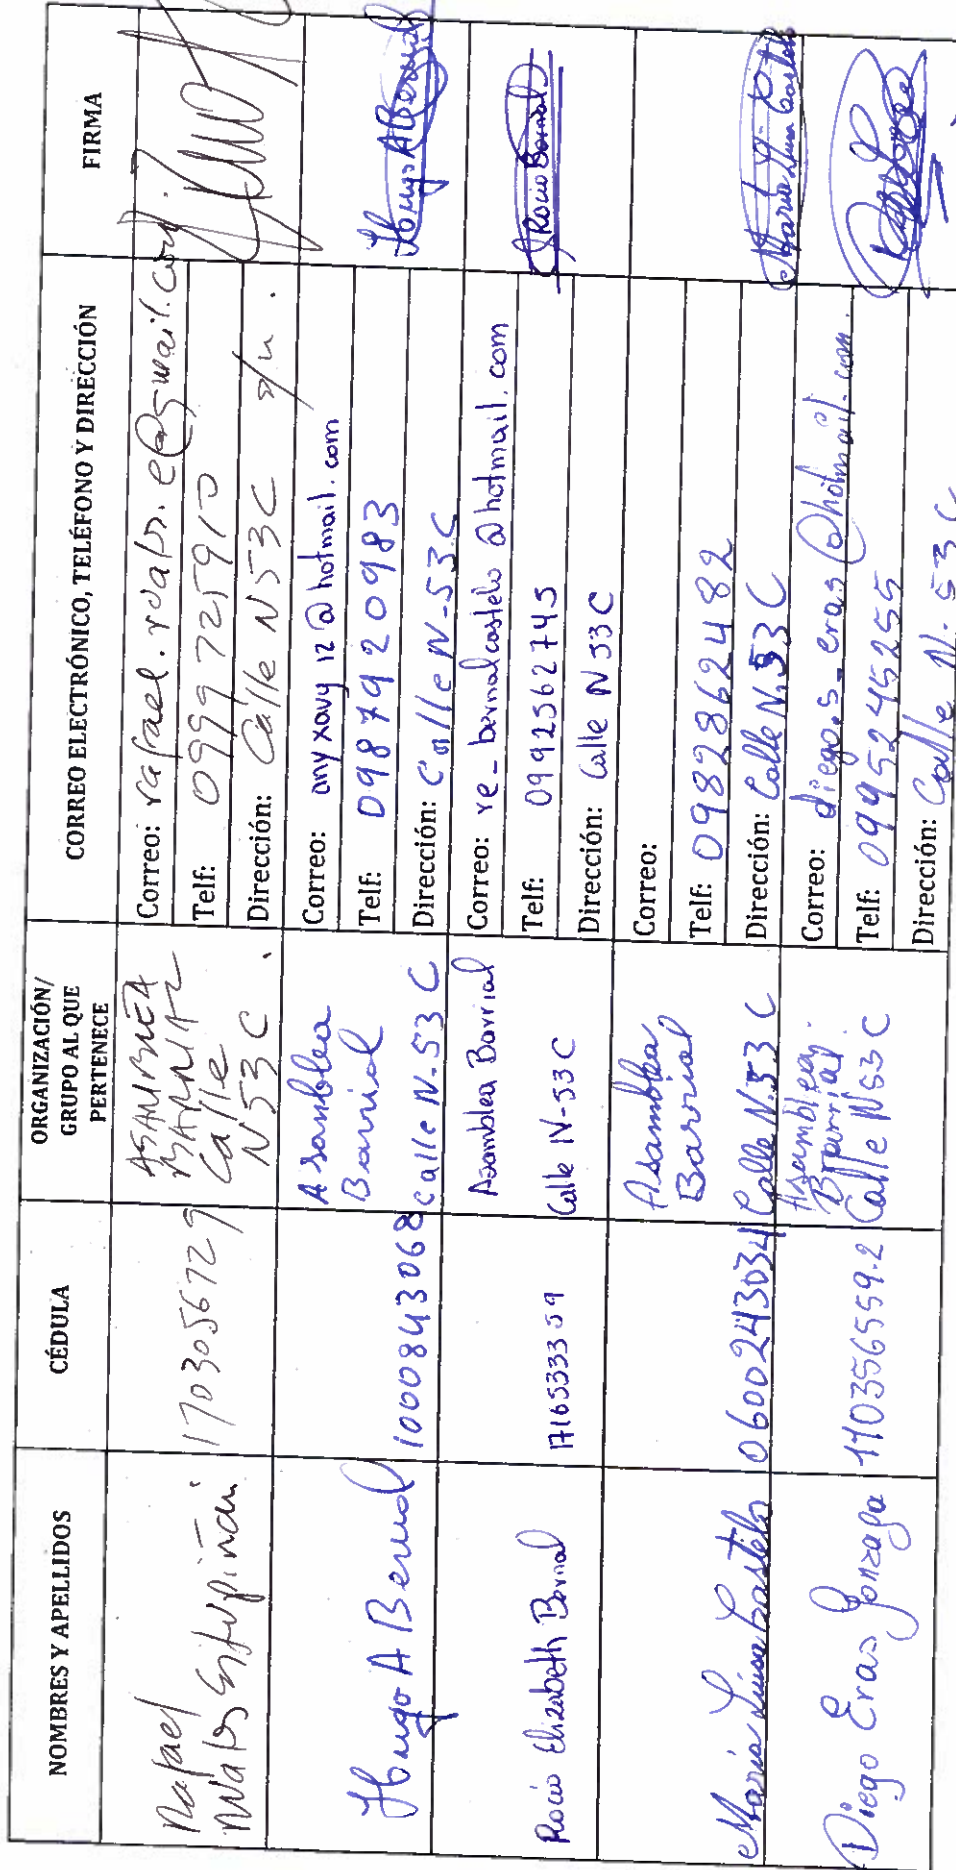 NOMBRES Y APELLIDOS
CÉDULA
ORGANIZACIÓN/
GRUPO AL QUE
PERTENECE
CORREO ELECTRÓNICO, TELÉFONO Y DIRECCIÓN
FIRMA
Rafael
Estupiñán
1703056729
ASAMBLEA
BARRIAL
Calle
N53C.
Correo:
Telf: 0999725910
Dirección: Calle N53C s/n.
Hugo A Bernal
1000843068
Asamblea
Barrial
Calle N-53 C
Correo: any xavy 12@hotmail.com
Telf: 0987920983
Dirección: Calle N-53C
Hugo A Bernal
Rocio Elizabeth Bernal
1716533359
Asamblea Barrial
Calle N-53C
Correo: re_bernalcastelo@hotmail.com
Telf: 0992562745
Dirección: Calle N53C
Rocio Bernal
Maria Luisa Castelo
0600243034
Asamblea
Barrial
Calle N.53 C
Correo:
Telf: 0982862482
Dirección: Calle N.53 C
Maria Luisa Castelo
Diego Eras Gonzaga
110356559-2
Asamblea
Barrial.
Calle N53C
Correo: diego.s_eras@hotmail.com.
Telf: 0995245255
Dirección: Calle N-53C